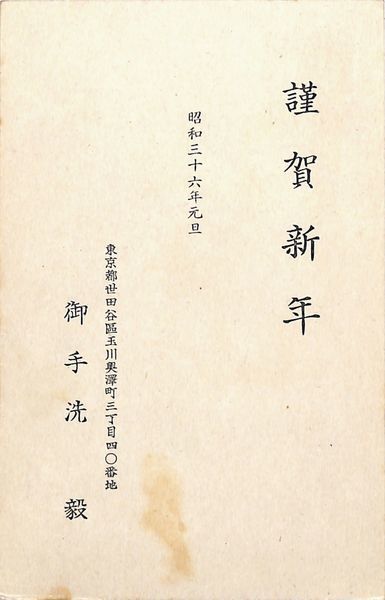 謹賀新年
昭和三十六年元旦
東京都世田谷區玉川奥澤町三丁目四〇番地
御手洗毅